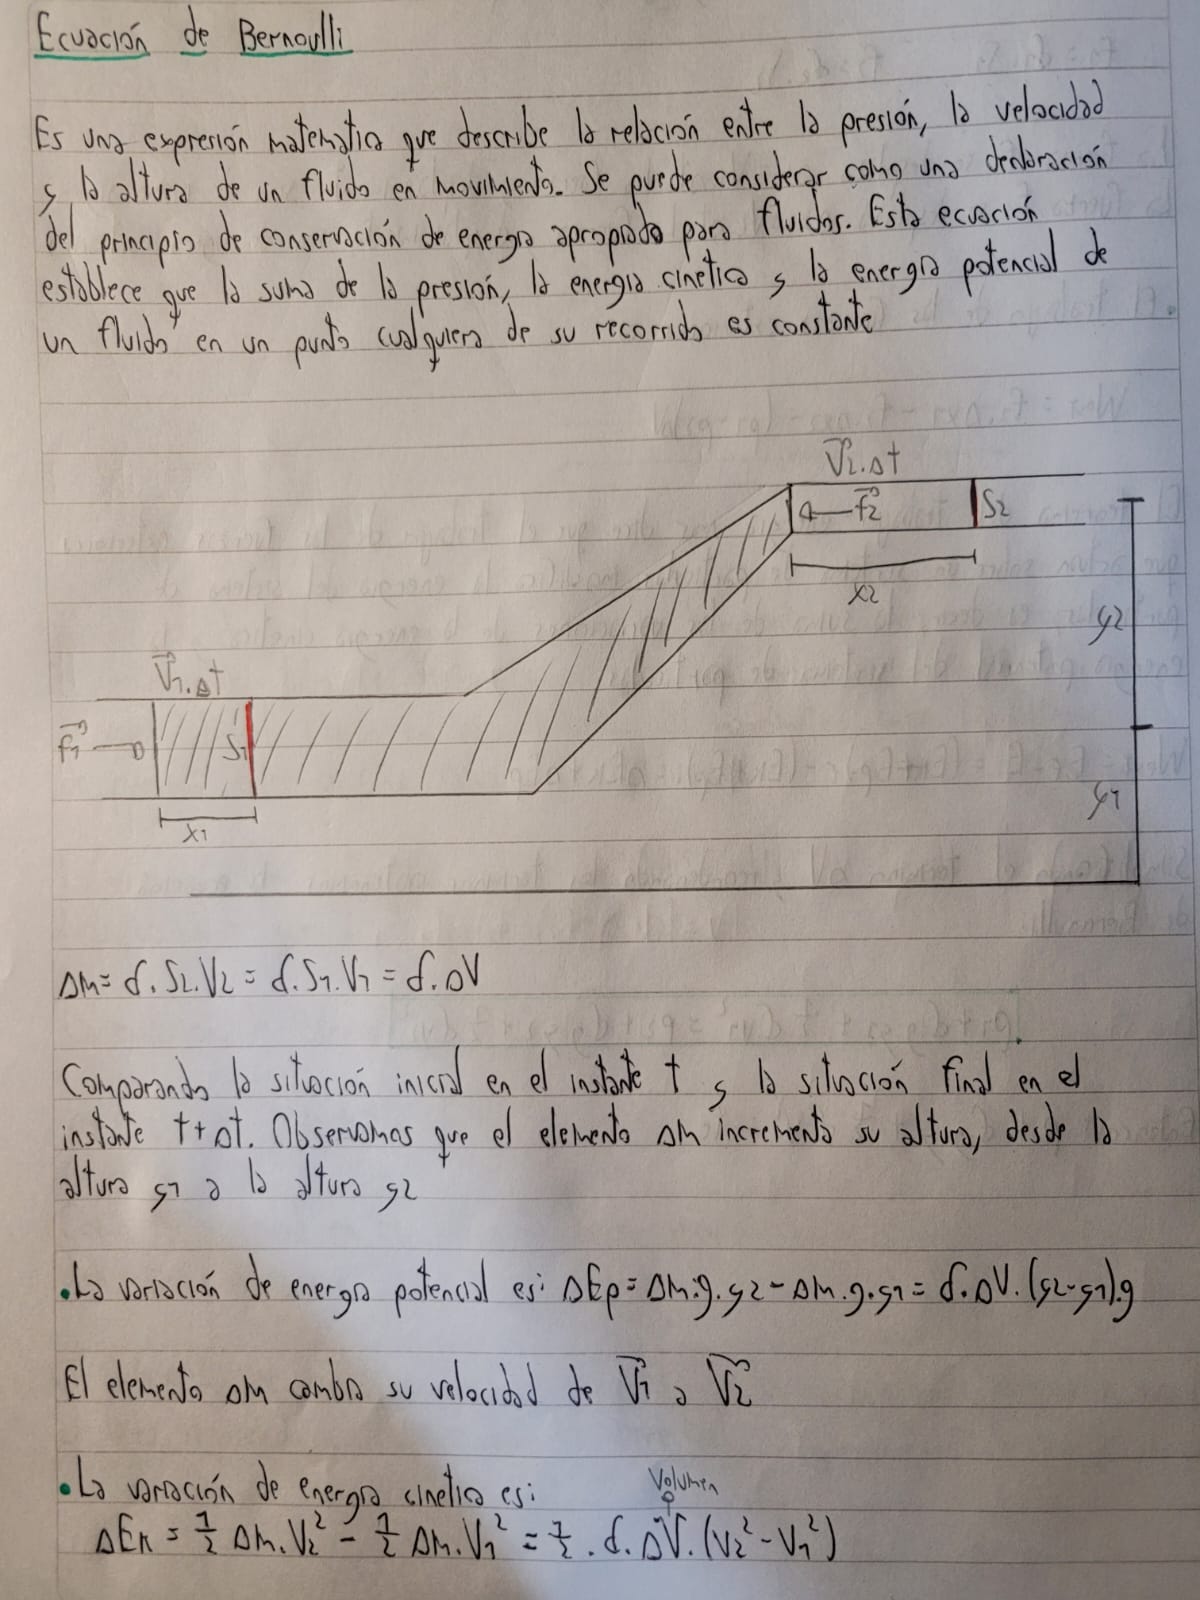 Ecuación de Bernoulli
Es una expresión matematica que describe la relación entre la presión, la velocidad
y la altura de un fluido en movimiento. Se puede considerar como una declaración
del principio de conservación de energia apropiado para fluidos. Esta ecuación
establece que la suma de la presión, la energia cinetica y la energia potencial de
un fluido en un punto cualquiera de su recorrido es constante
V2.Δt
F2
S2
X2
y2
V1.Δt
F1
S1
X1
y1
Δm= d. S2.V2 = d.S1.V1 = d.ΔV
Comparando la situación inicial en el instante t y la situación final en el
instante t+Δt. Observamos que el elemento Δm incrementa su altura, desde la
altura y1 a la altura y2
•La variación de energia potencial es: ΔEp=Δm.g.y2-Δm.g.y1= d.ΔV.(y2-y1).g
El elemento Δm cambia su velocidad de V1 a V2
•La variación de energia cinetica es:
Volumen
ΔEk = 1/2 Δm.V2² - 1/2 Δm.V1² = 1/2 . d. ΔV.(V2²-V1²)